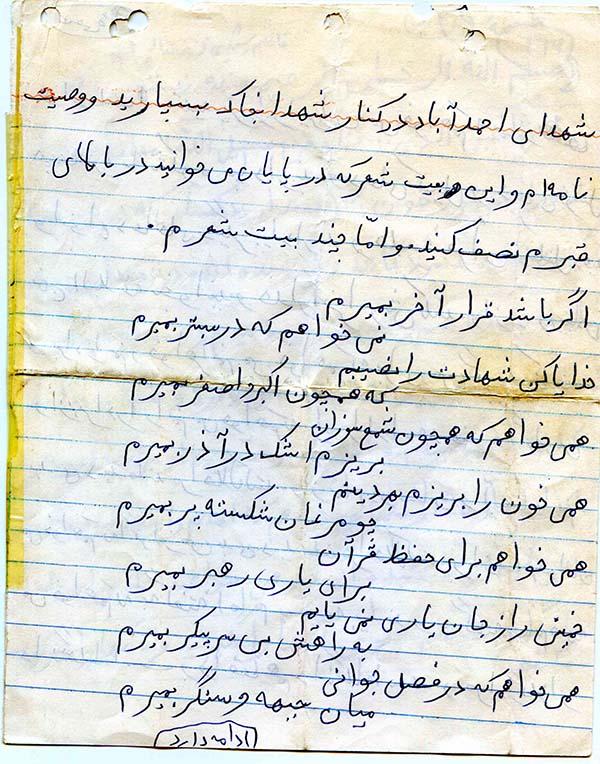 شهدای احمدآباد در کنار شهدا بخاک بسپارید و وصیت
نامه‌ام و این بیت شعر که در پایان می خوانید در بالای
قبرم نصف کنید. و امّا چند بیت شعرم.
اگر باشد قرار آخر بمیرم
نمی خواهم که در بستر بمیرم
خدایا کن شهادت را نصیبم
که همچون اکبر و اصغر بمیرم
همی خواهم که همچون شمع سوزان
بریزم اشک در آذر بمیرم
همی خون را بریزم بهر دینم
چو مرغان شکسته پر بمیرم
همی خواهم برای حفظ قرآن
برای یاری رهبر بمیرم
خمینی را ز جان یاری نمی یایم
به راهش بی سر پیکر بمیرم
همی خواهم که در فصل جوانی
میان جبهه و سنگر بمیرم
ادامه دارد